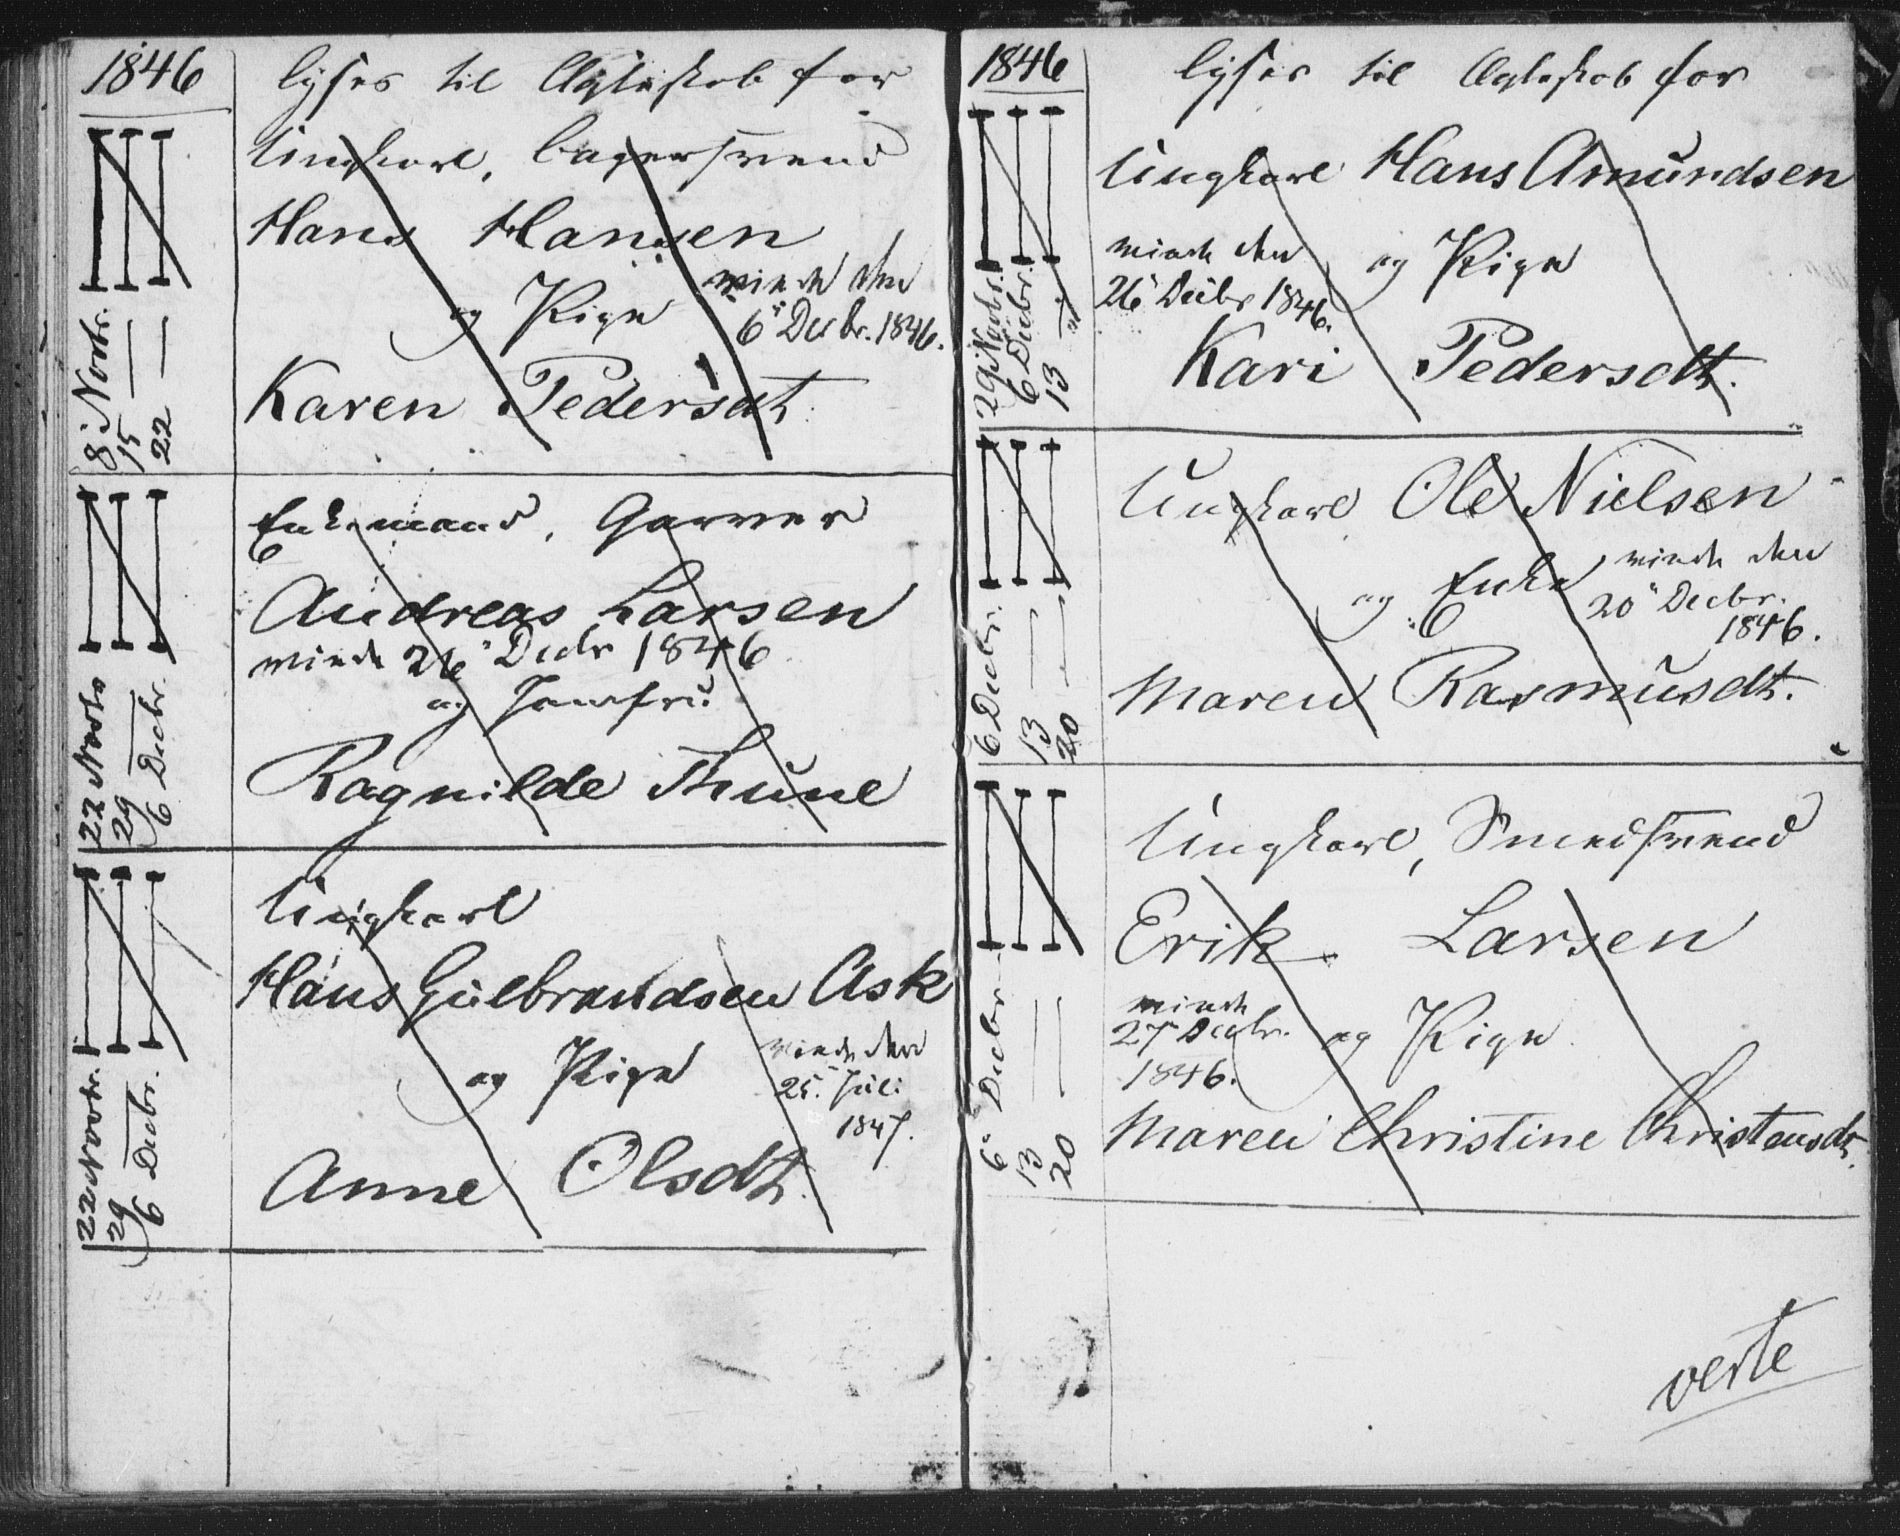 1846
lyses til Ægteskab for
Ungkarl, Bagersvend
Hans Hansen
og Pige
viede den
6" Decbr. 1846.
Karen Pedersdt.
8" Novbr.
15 —
22 —
Enkemand, Garver
Andreas Larsen
viede 26" Decbr 1846
og Jomfru
Ragnilde Thune
22 Novbr
29 —
6 Decbr.
Ungkarl
Hans Gulbrandsen Ask
og Pige
viede den
25. Juli
1847.
Anne Olsdt.
22 Novbr.
29 —
6 Decbr.
1846
lyses til Ægteskab for
Ungkarl Hans Amundsen
viede den
26" Decbr 1846.
og Pige
Kari Pedersdt.
29 Novbr.
6 Decbr.
13 —
Ungkarl Ole Nielsen
og Enke
viede den
20" Decbr.
1846.
Maren Rasmusdt.
6 Decbr.
13 —
20 —
Ungkarl, Smedsvend
Erik Larsen
viede
27" Decbr.
1846.
og Pige
Maren Christine Christensdt.
6" Decbr
13 —
20 —
verte